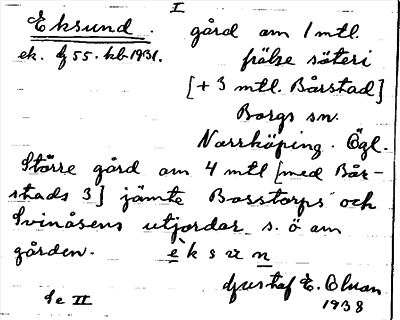 I
Eksund. gård om 1 mtl.
ek. bf 55. kb 1931. frälse säteri
[+ 3 mtl. Bårstad]
Borgs sn.
Norrköping. Ögl.
Större gård om 4 mtl [med Bår-
stads 3] jämte Bosstorps och
Svinåsens utjordar s. ö om
gården. èksun
Gustaf E. Olman
Se II 1938